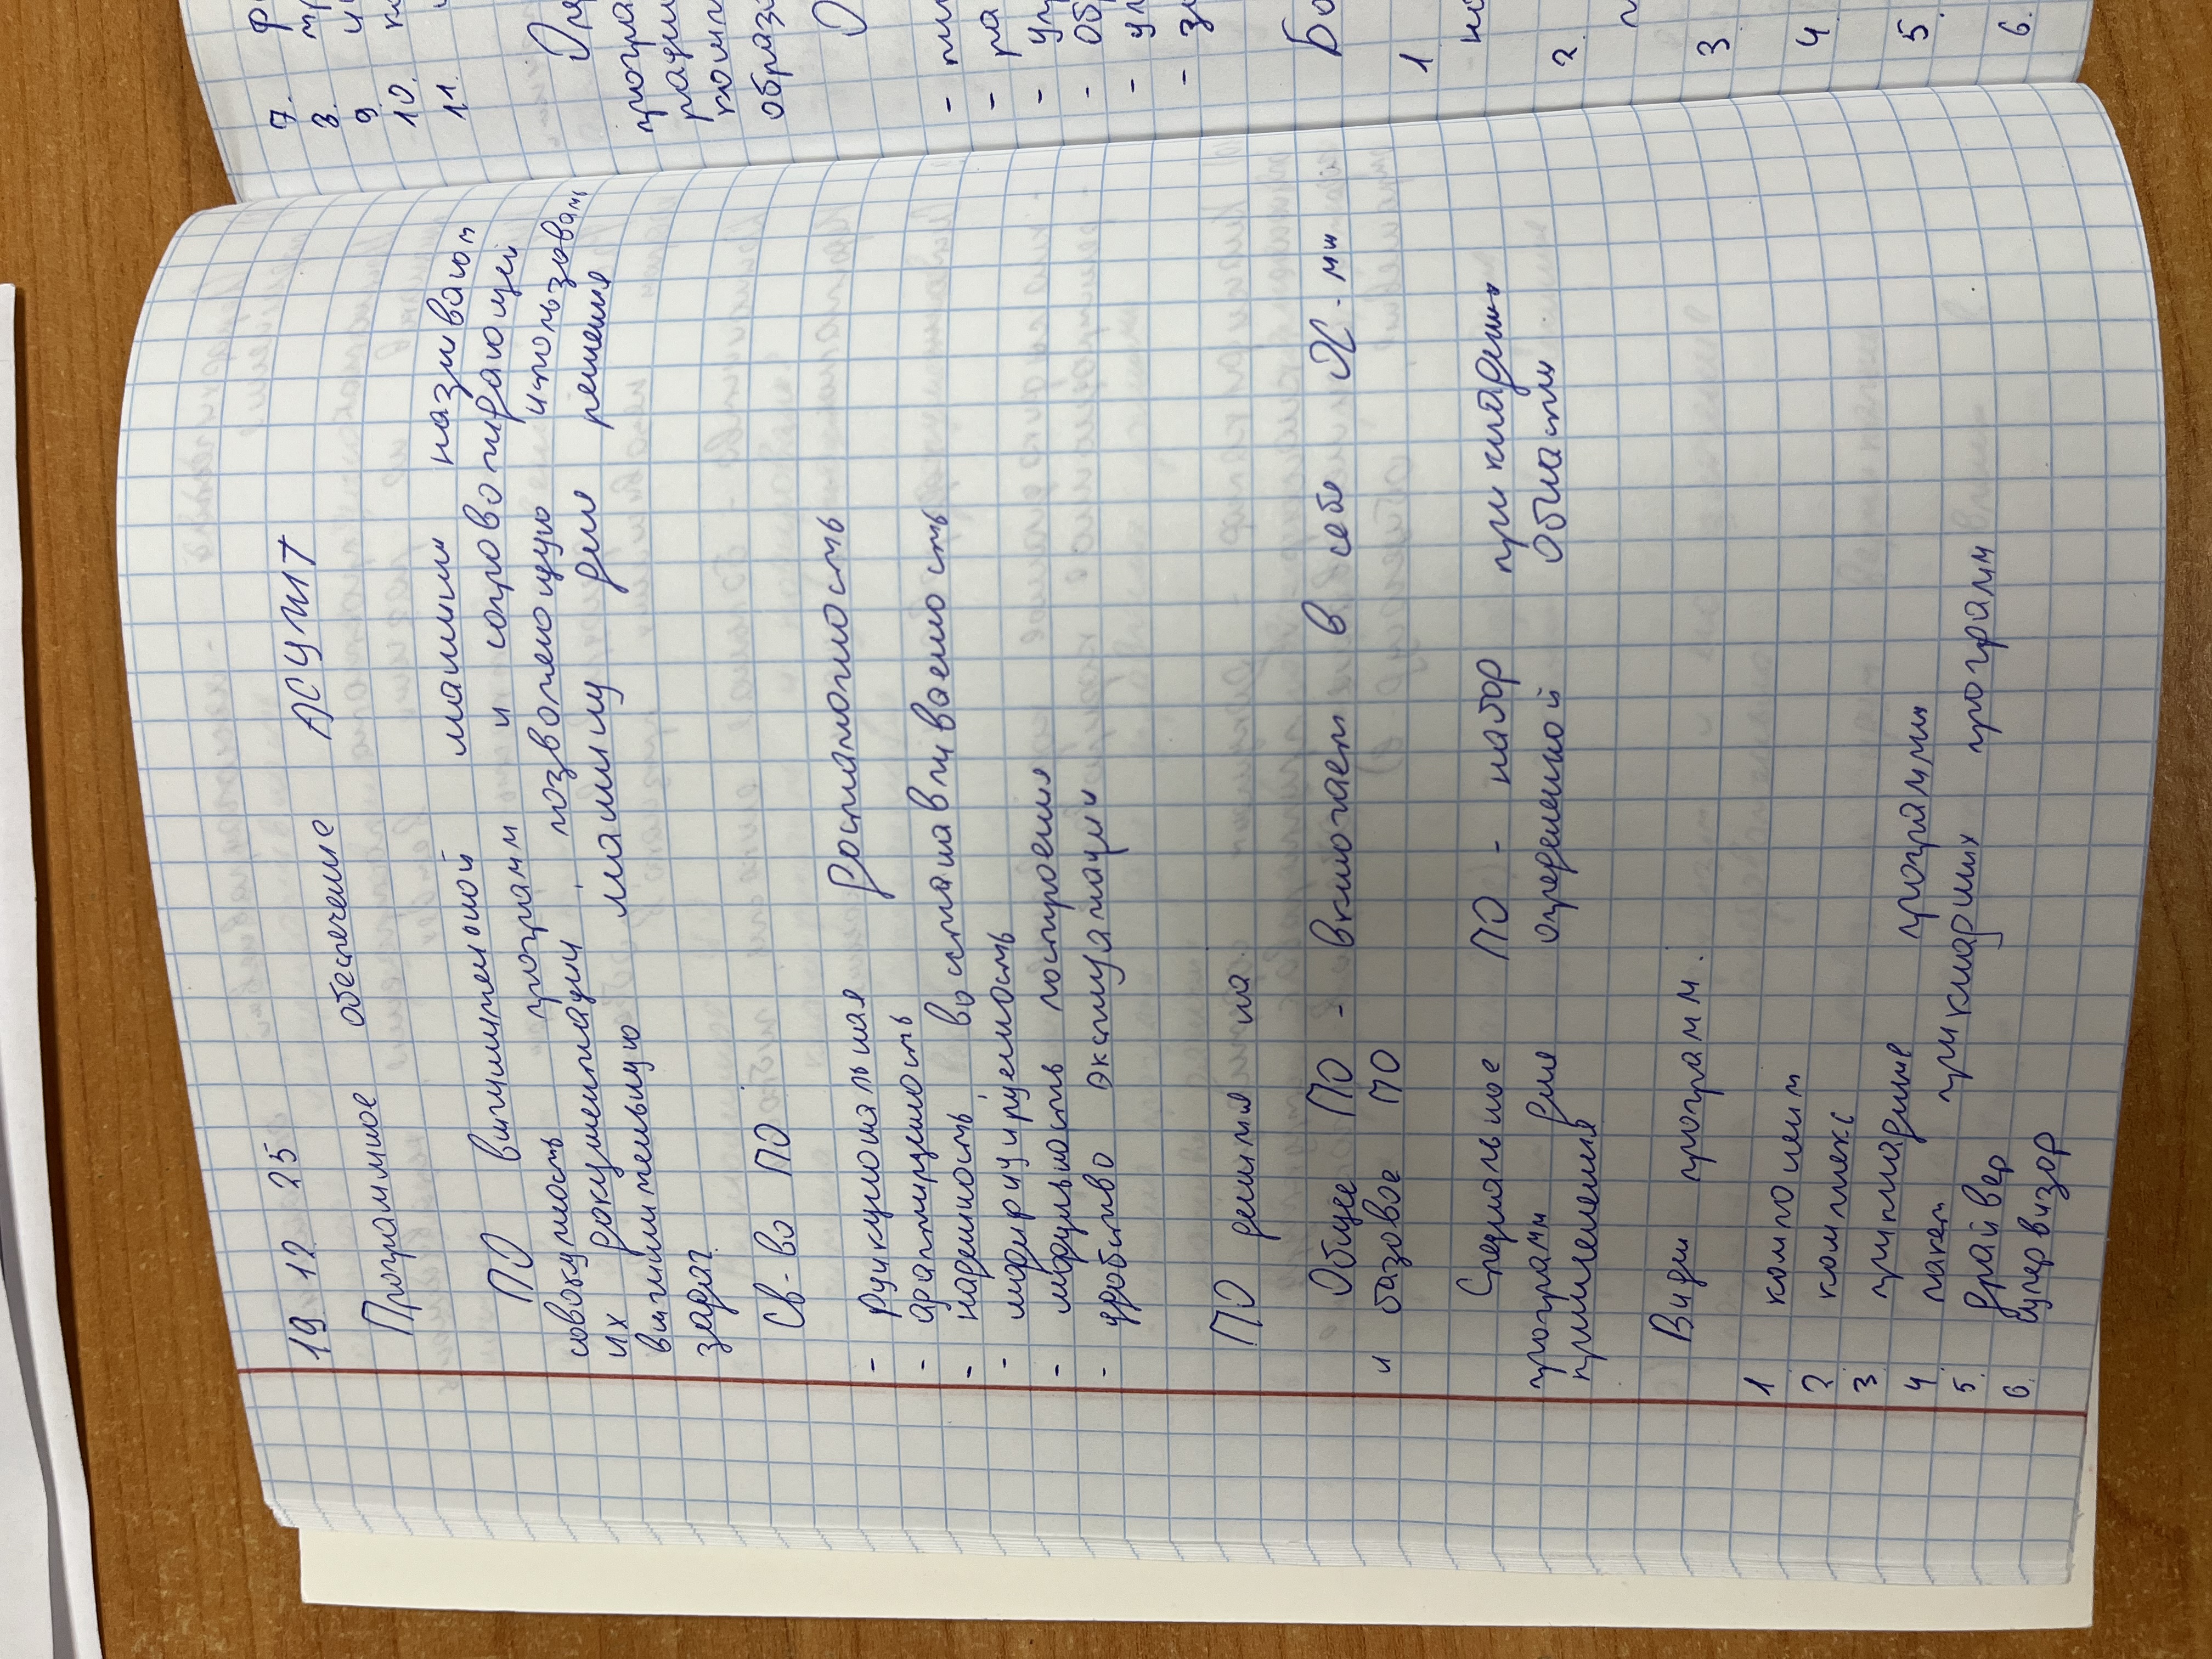 19 12 25 АСУ ИИТ
Программное обеспечение
ПО вычислительной машины называют
совокупность программ и сопровотирающей
их документации позволяющую использовать
вычислительную машину для решения
задач.
Св-во ПО
- функциональная достаточность
- адаптируемость
- надежность, восстанавливаемость
- модифицируемость
- модульность построения
- удобство эксплуатации
ПО делится на
Общее ПО - включает в себя ОС - мы
и базовое ПО
Специальное ПО - набор прикладных
программ для определенной области
применения
Виды программ.
1 компонент
2 комплекс
3 прикладные программы
4 пакет прикладных программ
5. Драйвер
6. Супервизор
7.
8.
9
10.
11.
програ
образ
1
2
3
4
5.
6.